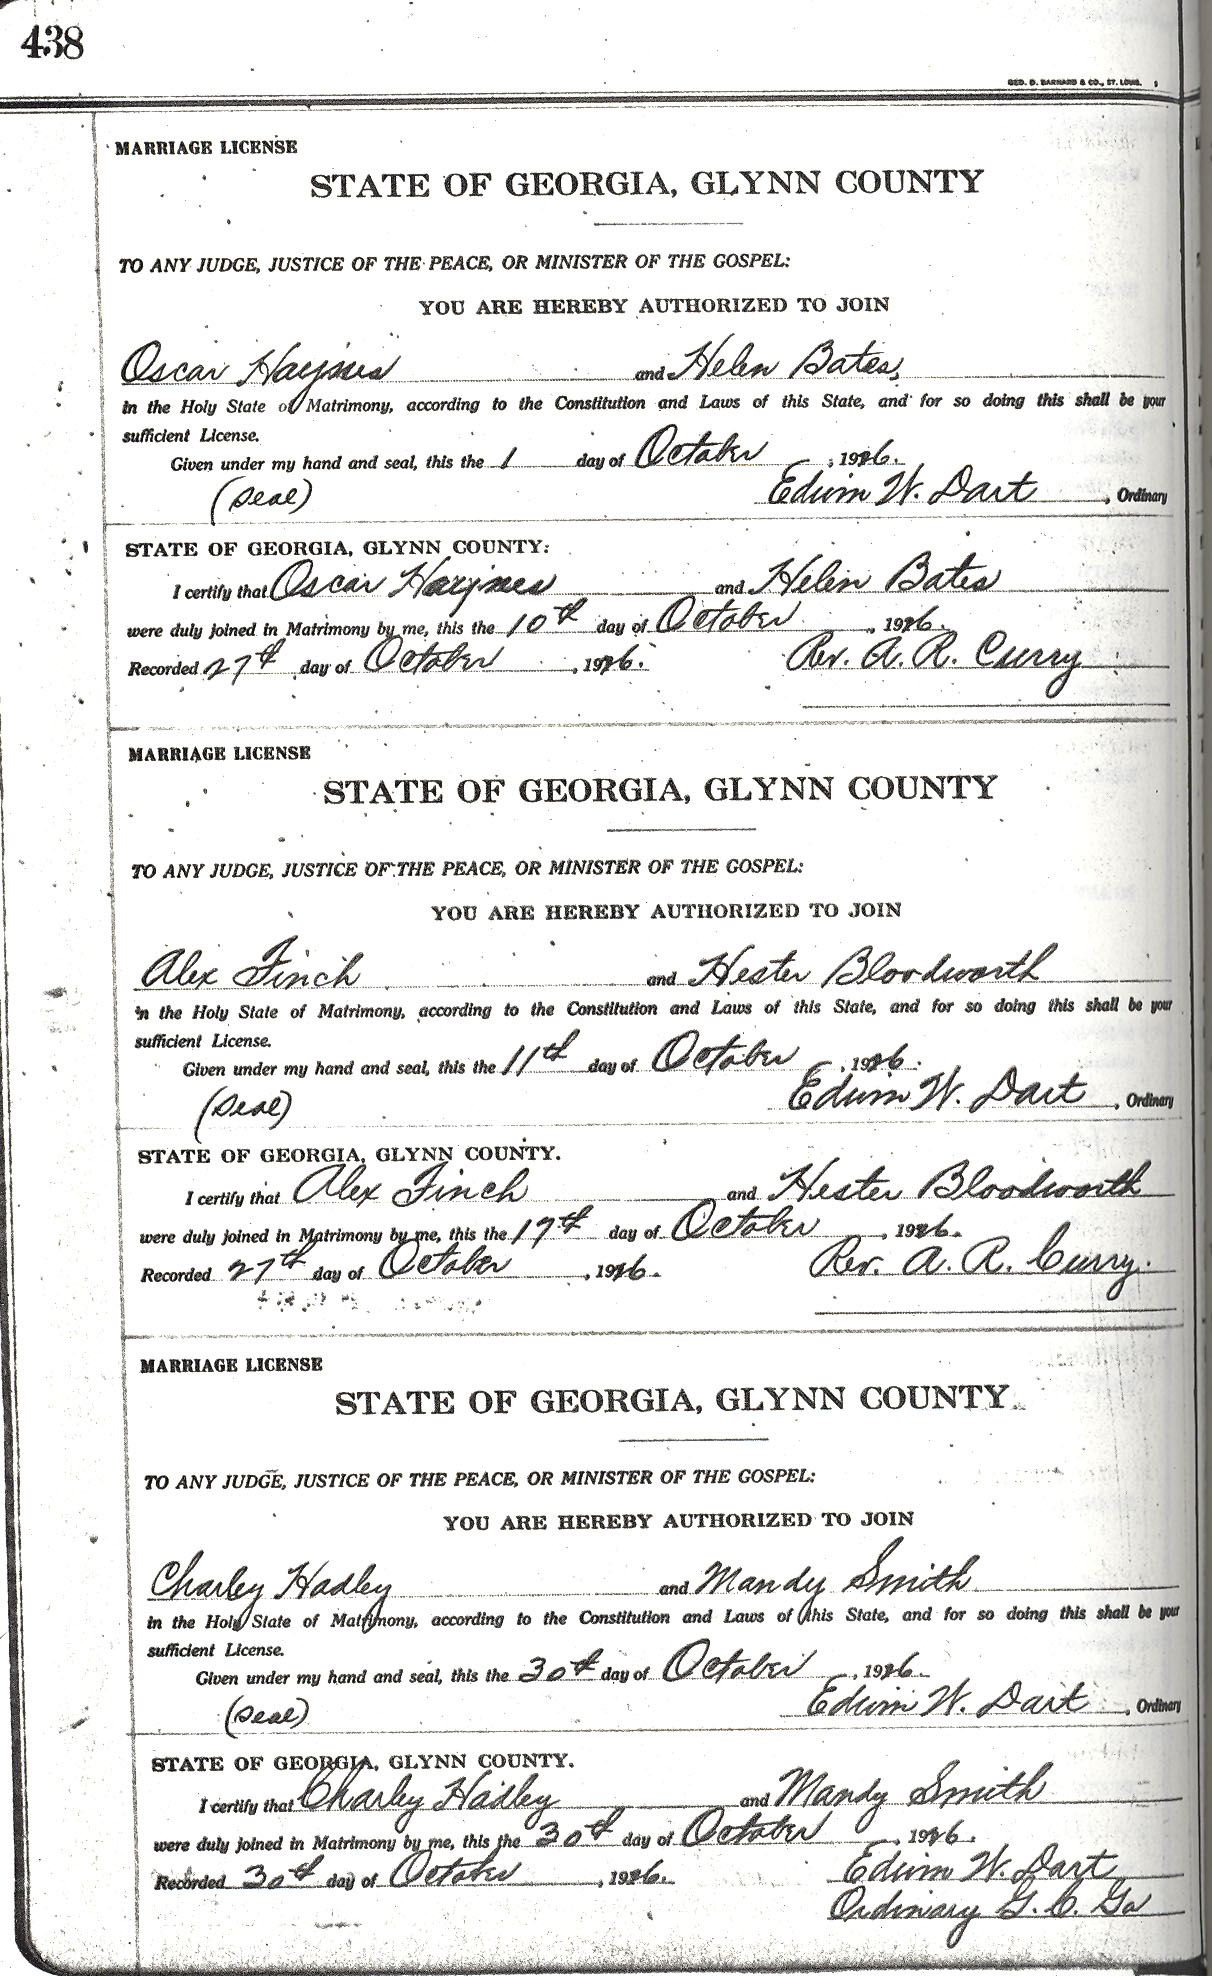 438
GEO. D. BARNARD & CO., ST. LOUIS.
MARRIAGE LICENSE
STATE OF GEORGIA, GLYNN COUNTY
TO ANY JUDGE, JUSTICE OF THE PEACE, OR MINISTER OF THE GOSPEL:
YOU ARE HEREBY AUTHORIZED TO JOIN
Oscar Haynes and Helen Bates,
in the Holy State of Matrimony, according to the Constitution and Laws of this State, and for so doing this shall be your
sufficient License.
Given under my hand and seal, this the 1 day of October, 1926.
(Seal) Edwin W. Dart, Ordinary
STATE OF GEORGIA, GLYNN COUNTY:
I certify that Oscar Haynes and Helen Bates
were duly joined in Matrimony by me, this the 10th day of October, 1926.
Recorded 27th day of October, 1926. Rev. A. R. Curry
MARRIAGE LICENSE
STATE OF GEORGIA, GLYNN COUNTY
TO ANY JUDGE, JUSTICE OF THE PEACE, OR MINISTER OF THE GOSPEL:
YOU ARE HEREBY AUTHORIZED TO JOIN
Alex Finch and Hester Bloodworth
in the Holy State of Matrimony, according to the Constitution and Laws of this State, and for so doing this shall be your
sufficient License.
Given under my hand and seal, this the 11th day of October, 1926.
(Seal) Edwin W. Dart, Ordinary
STATE OF GEORGIA, GLYNN COUNTY.
I certify that Alex Finch and Hester Bloodworth
were duly joined in Matrimony by me, this the 17th day of October, 1926.
Recorded 27th day of October, 1926. Rev. A. R. Curry.
MARRIAGE LICENSE
STATE OF GEORGIA, GLYNN COUNTY
TO ANY JUDGE, JUSTICE OF THE PEACE, OR MINISTER OF THE GOSPEL:
YOU ARE HEREBY AUTHORIZED TO JOIN
Charley Hadley and Mandy Smith
in the Holy State of Matrimony, according to the Constitution and Laws of this State, and for so doing this shall be your
sufficient License.
Given under my hand and seal, this the 30th day of October, 1926.
(Seal) Edwin W. Dart, Ordinary
STATE OF GEORGIA, GLYNN COUNTY.
I certify that Charley Hadley and Mandy Smith
were duly joined in Matrimony by me, this the 30th day of October, 1926.
Recorded 30th day of October, 1926. Edwin W. Dart
Ordinary G. C. Ga